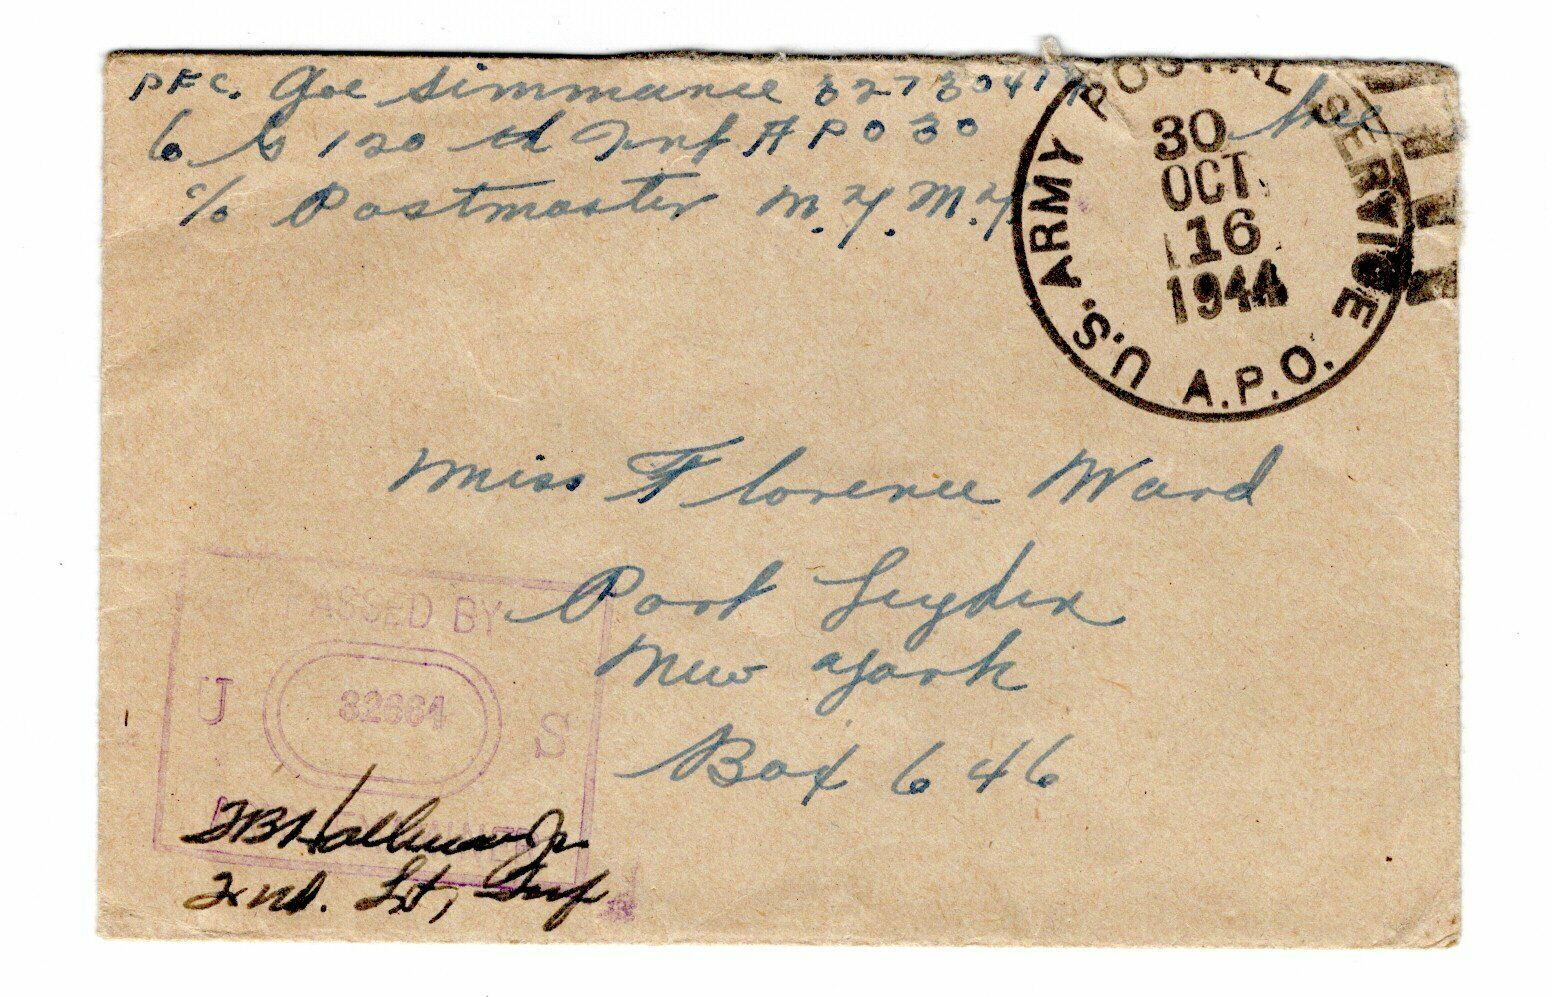 PFC. Joe Simmance 3273041 Free
Co G 120th Inf APO 30
c/o Postmaster N.Y. N.Y.
U.S. ARMY POSTAL SERVICE
30
OCT
16
1944
A.P.O.
Miss Florence Ward
Port Leyden
New York
Box 646
PASSED BY
U S
ARMY EXAMINER
Jr.
2nd. Lt, Inf